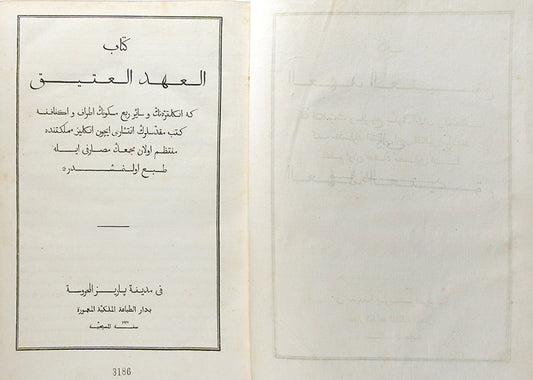 كتاب
العهد العتيق
كه انكلترەنك و سائر ربع مسكونك اطراف و اكنافنه
كتب مقدسەنك انتشارى ايچون انكليز مملكتنده
منتظم اولان مجمعك مصارفى ايله
طبع اولنمشدر
فى مدينة پاريز المحروسة
بدار الطباعة الملكية المعمورة
سنة المسيحية
3186